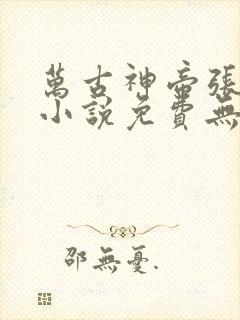 萬古神帝張
小說免費無
邵無憂.